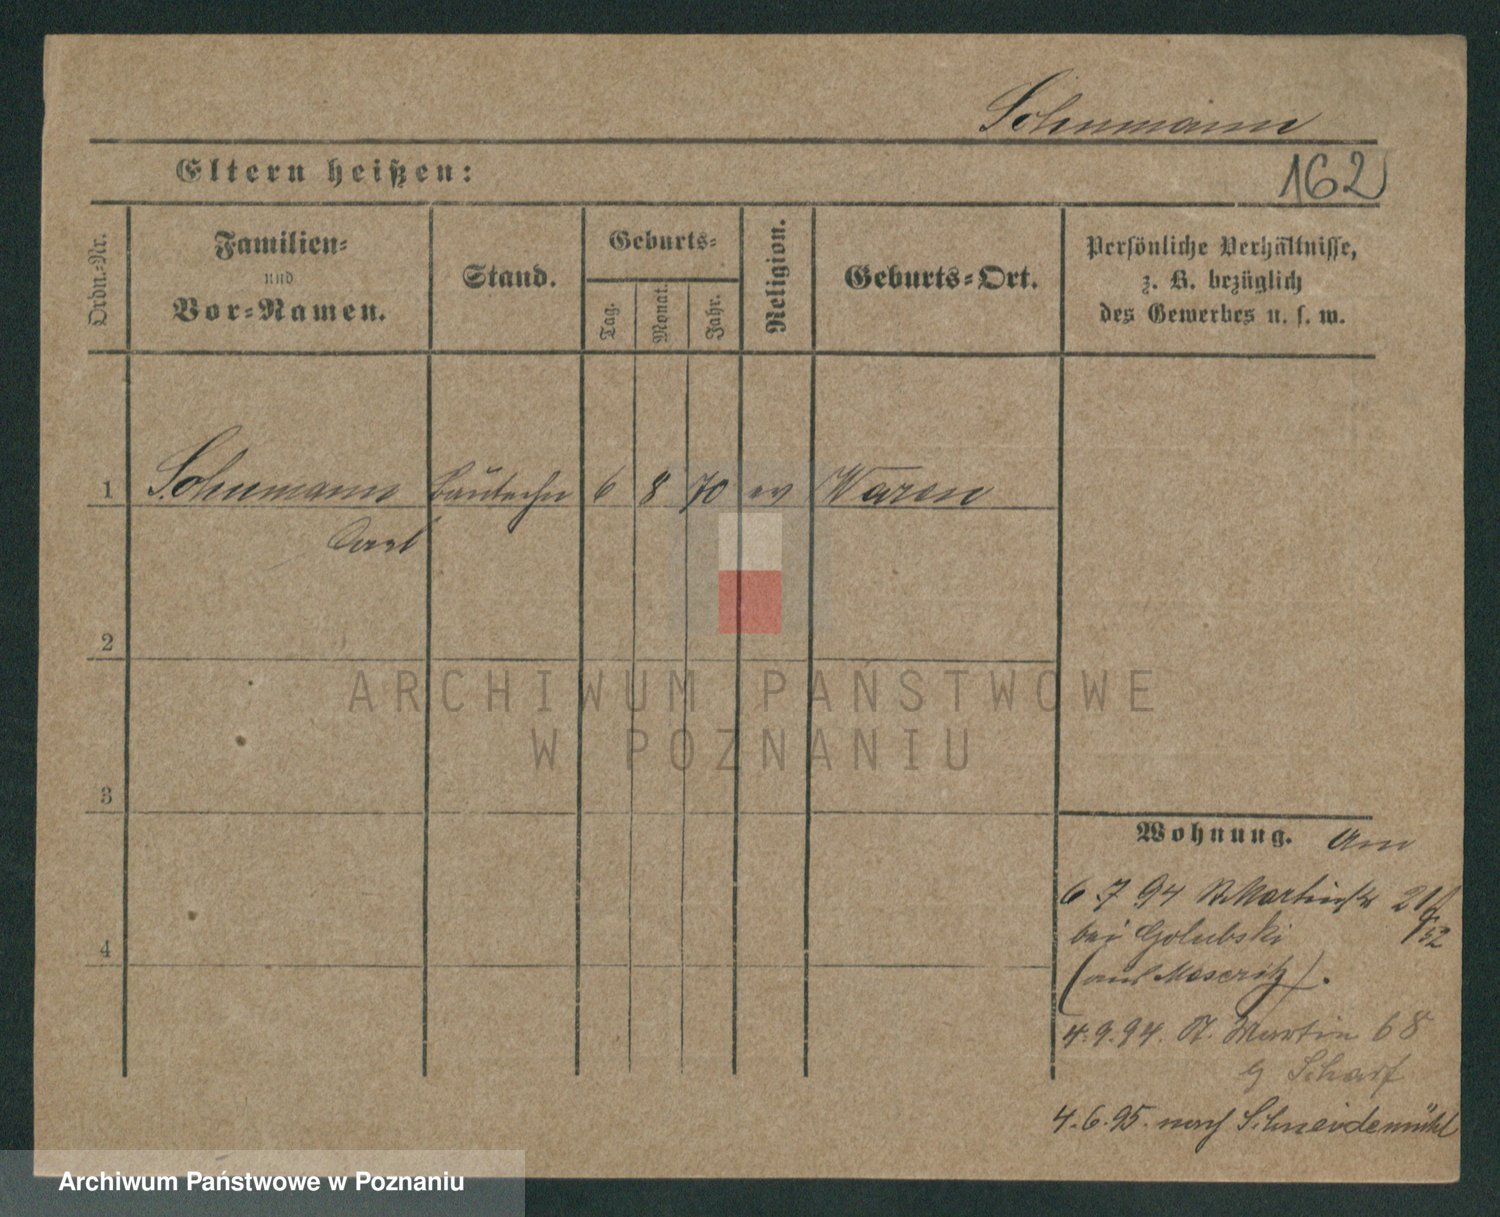 Schumann
Eltern heißen:
162
Ordn.-Nr.
Familien-
und
Vor-Namen.
Stand.
Geburts-
Tag.
Monat.
Jahr.
Religion.
Geburts-Ort.
Persönliche Verhältnisse,
z. B. bezüglich
des Gewerbes u. s. w.
1 Schumann Bautechn 6 8 70 ev Waren
Carl
2
ARCHIWUM PAŃSTWOWE
W POZNANIU
3
Wohnung. Am
6.7.94 St Martinstr
bei Golubski
4
(aus Meseritz).
4.9.94. St. Martin 68
b Scharf
4.6.95. nach Schneidemühl
Archiwum Państwowe w Poznaniu